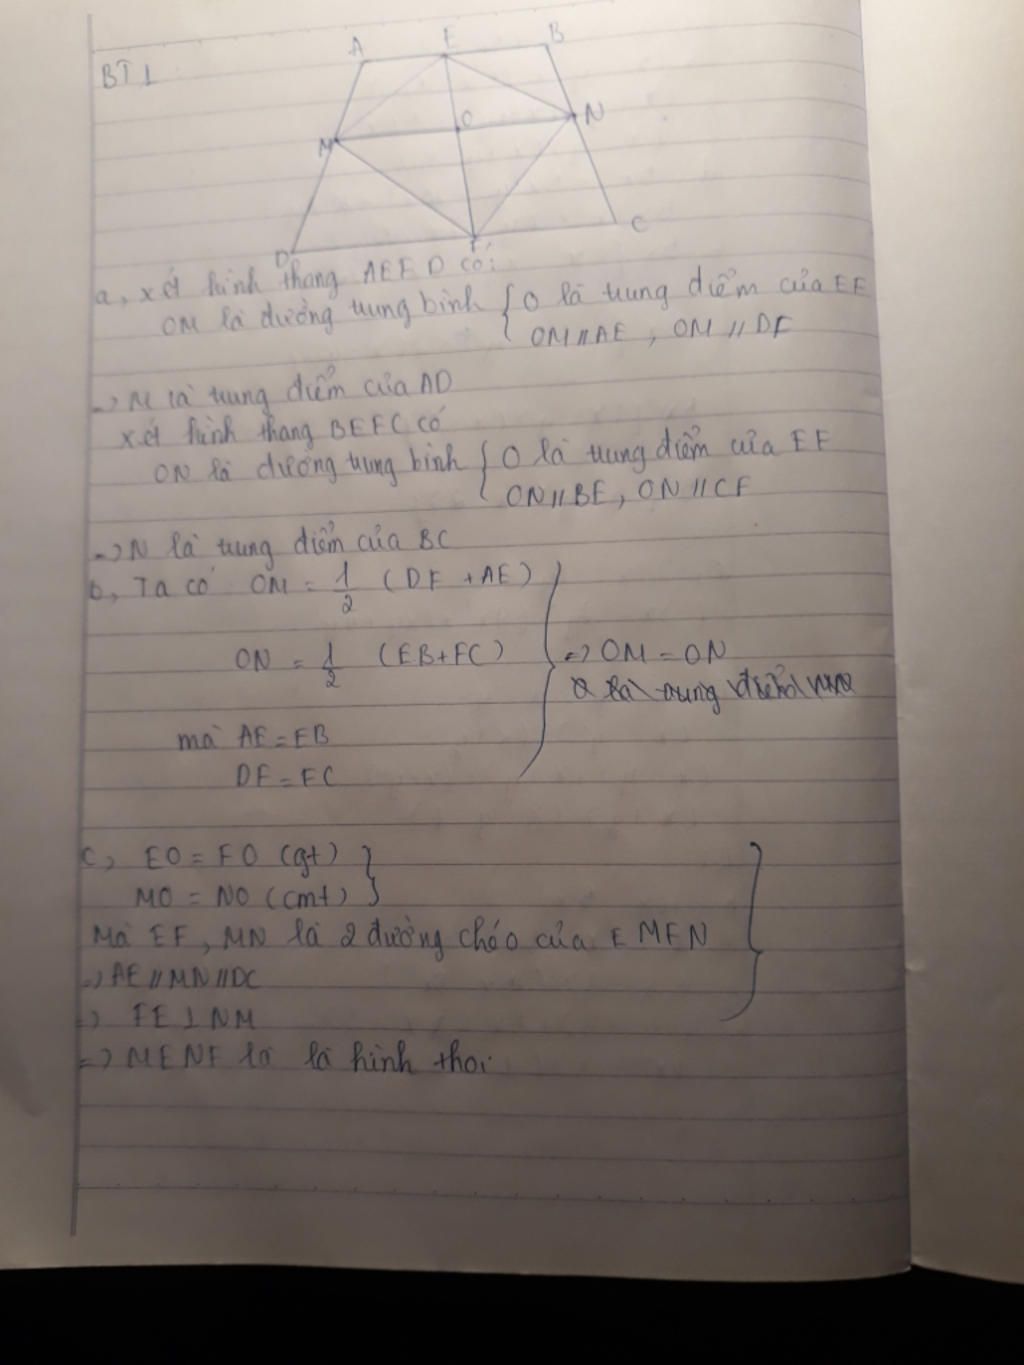 BT1
A E B
M O N
D F C
a, xét hình thang AEFD có:
OM là đường trung bình { O là trung điểm của EF
OM // AE , OM // DF
=> M là trung điểm của AD
xét hình thang BEFC có
ON là đường trung bình { O là trung điểm của EF
ON // BE , ON // CF
=> N là trung điểm của BC
b, Ta có OM = 1/2 (DF + AE)
ON = 1/2 (EB+FC) } => OM = ON
O là trung điểm
mà AE = EB
DF = FC
c, EO = FO (gt)
MO = NO (cmt) }
Mà EF, MN là 2 đường chéo của EMFN
=> AE // MN // DC
=> FE ⊥ NM
=> MENF là là hình thoi